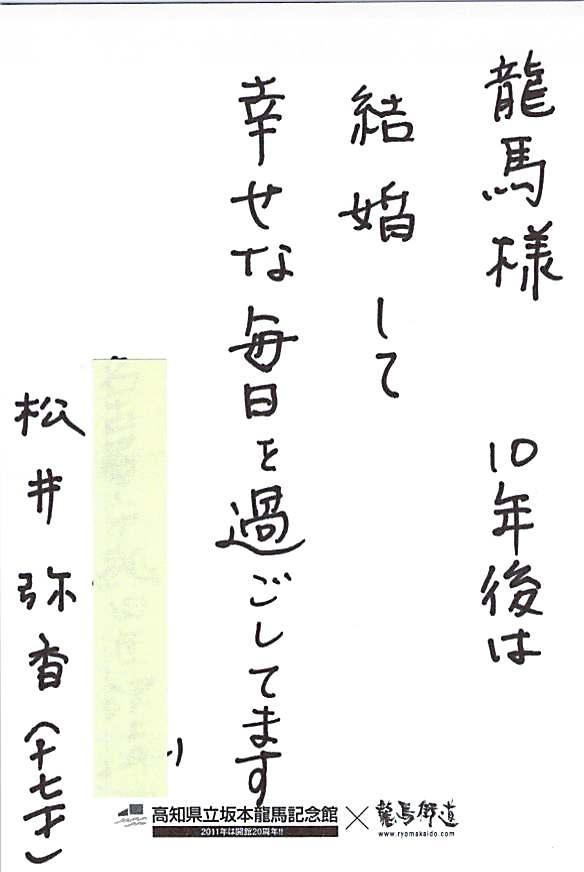 龍馬様 10年後は
結婚して
幸せな毎日を過ごしてます
松井弥香(十七才)
高知県立坂本龍馬記念館×龍馬街道
2011年は開館20周年!!
www.ryomakaido.com